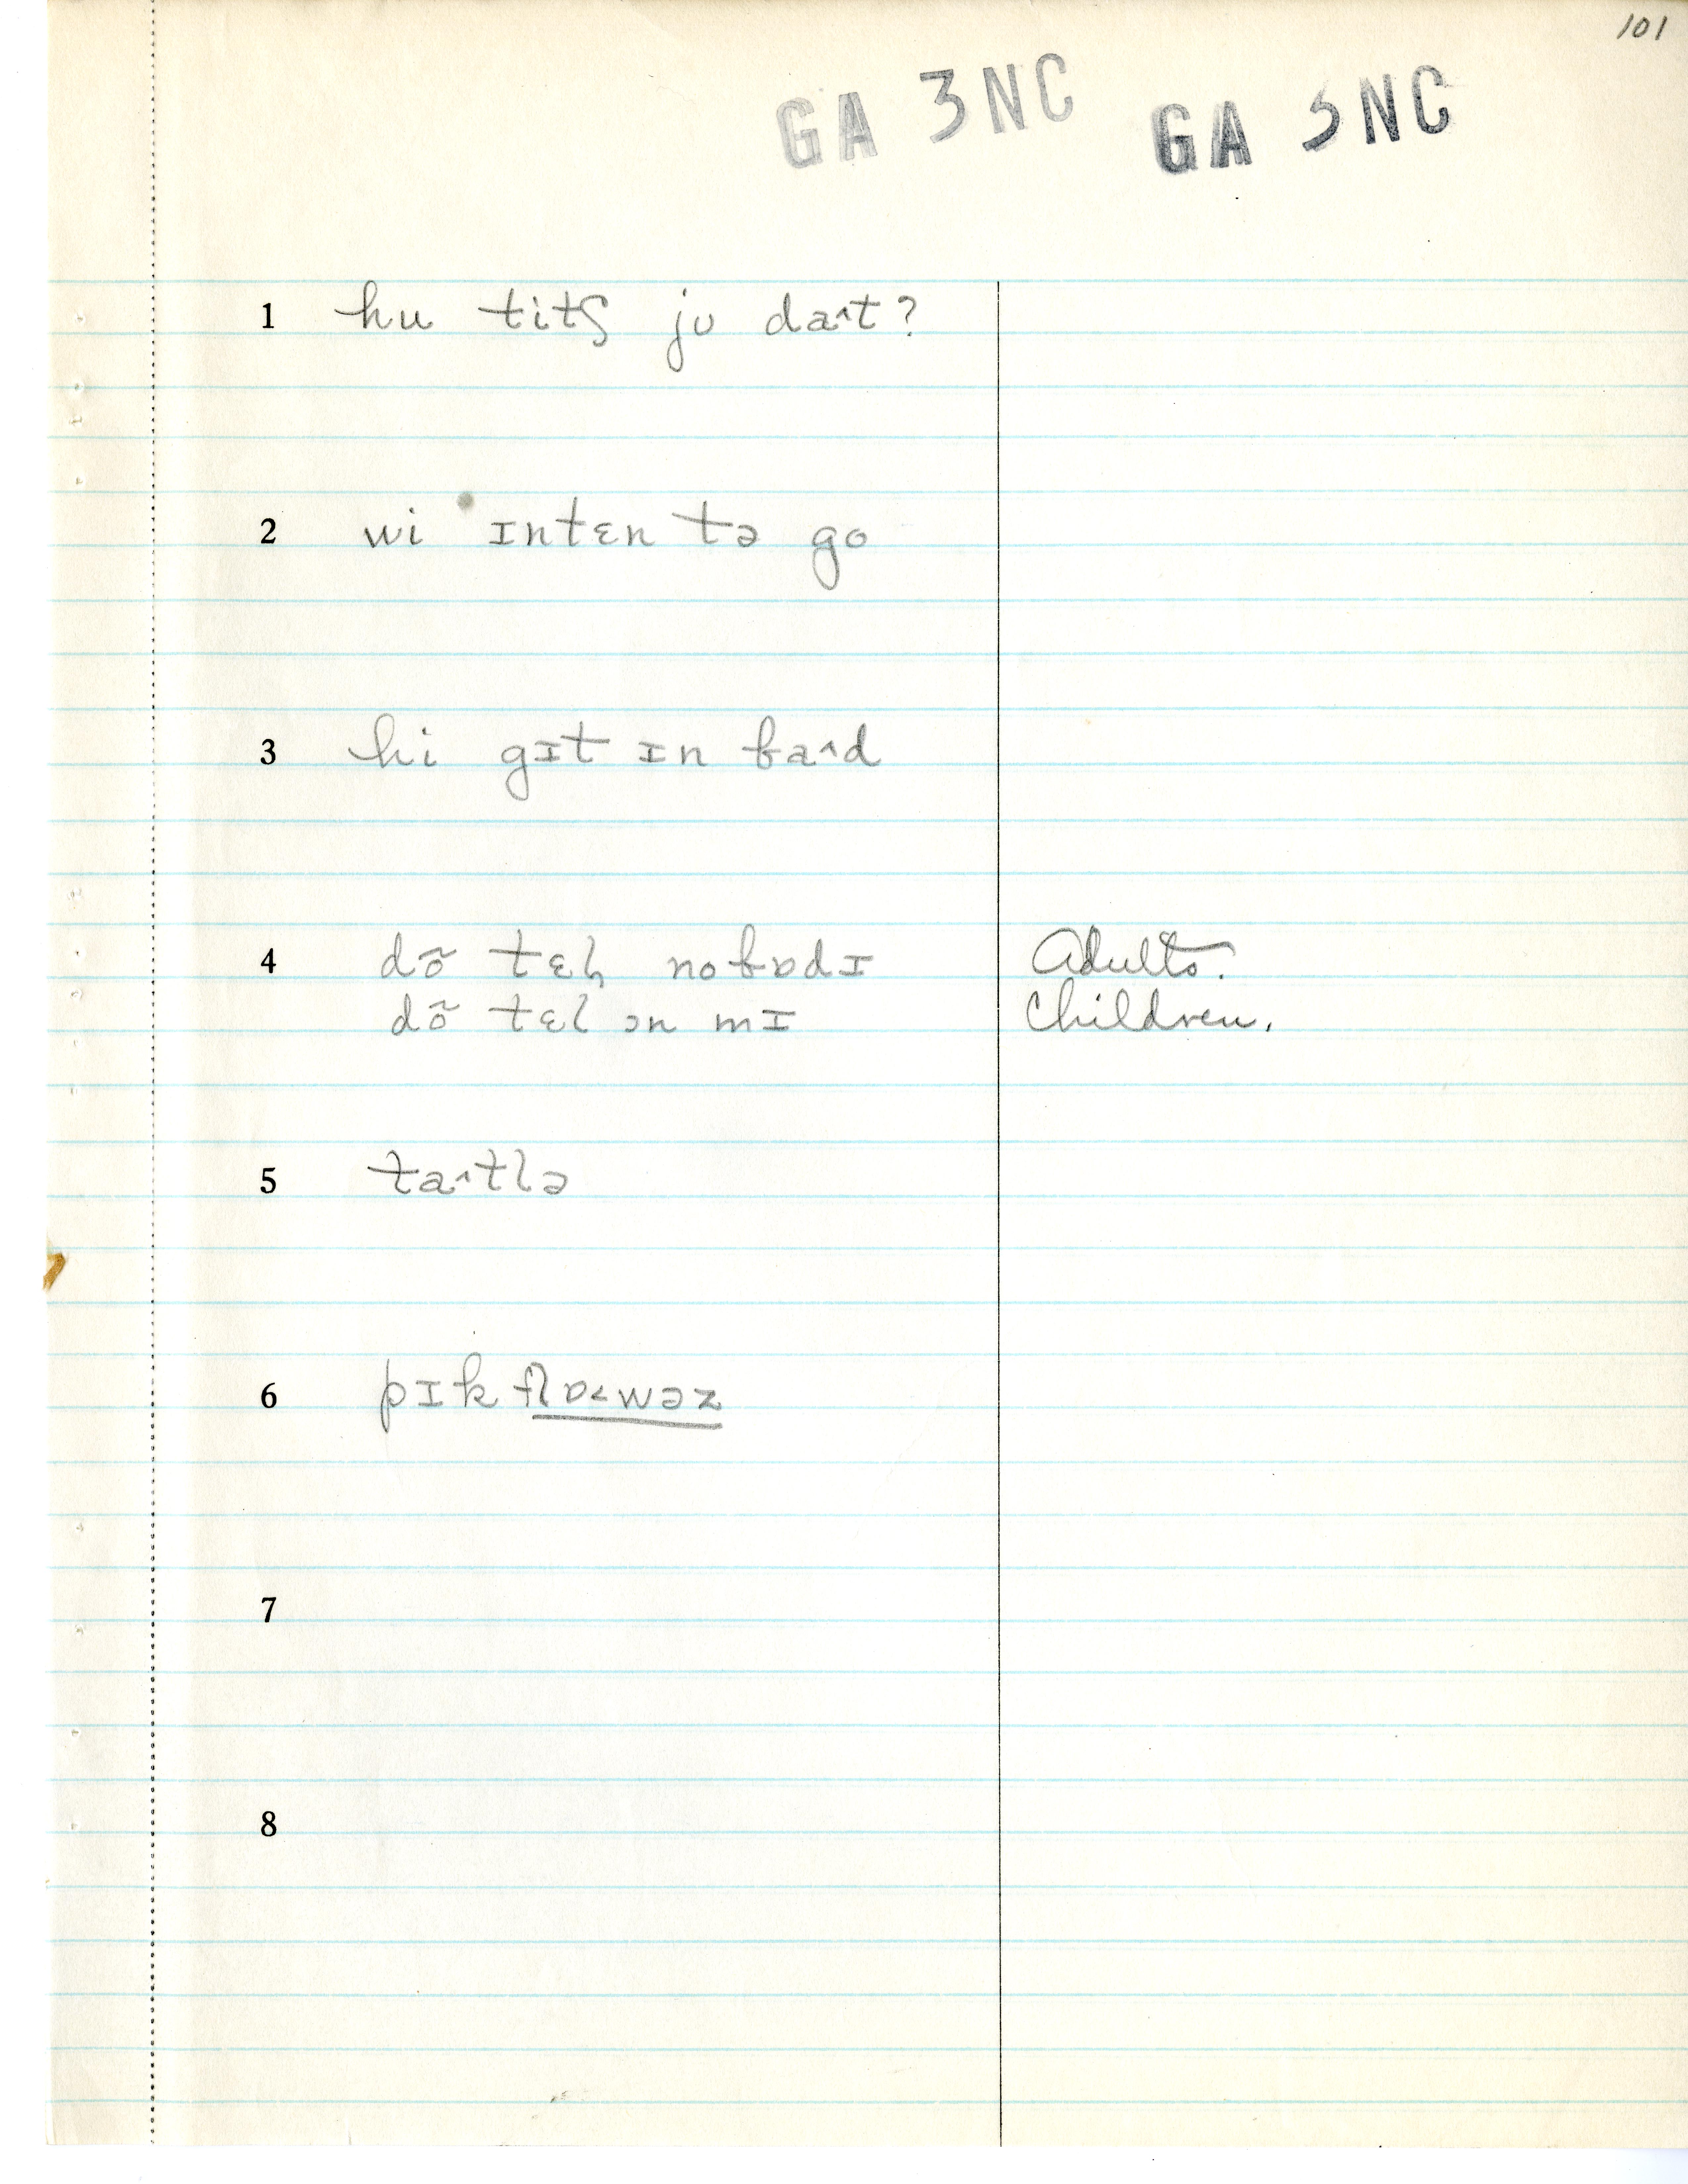 101
GA 3NC GA 3NC
1 hu titʃ jʊ da˄t?
2 wi ɪntɛn tə go
3 hi gɪt ɪn ba˄d
4 dõ tɛl̥ nobɒdɪ Adults.
dõ tɛl ɔn mɪ Children.
5 ta˄tlə
6 pɪk flɒ˂wəz
7
8